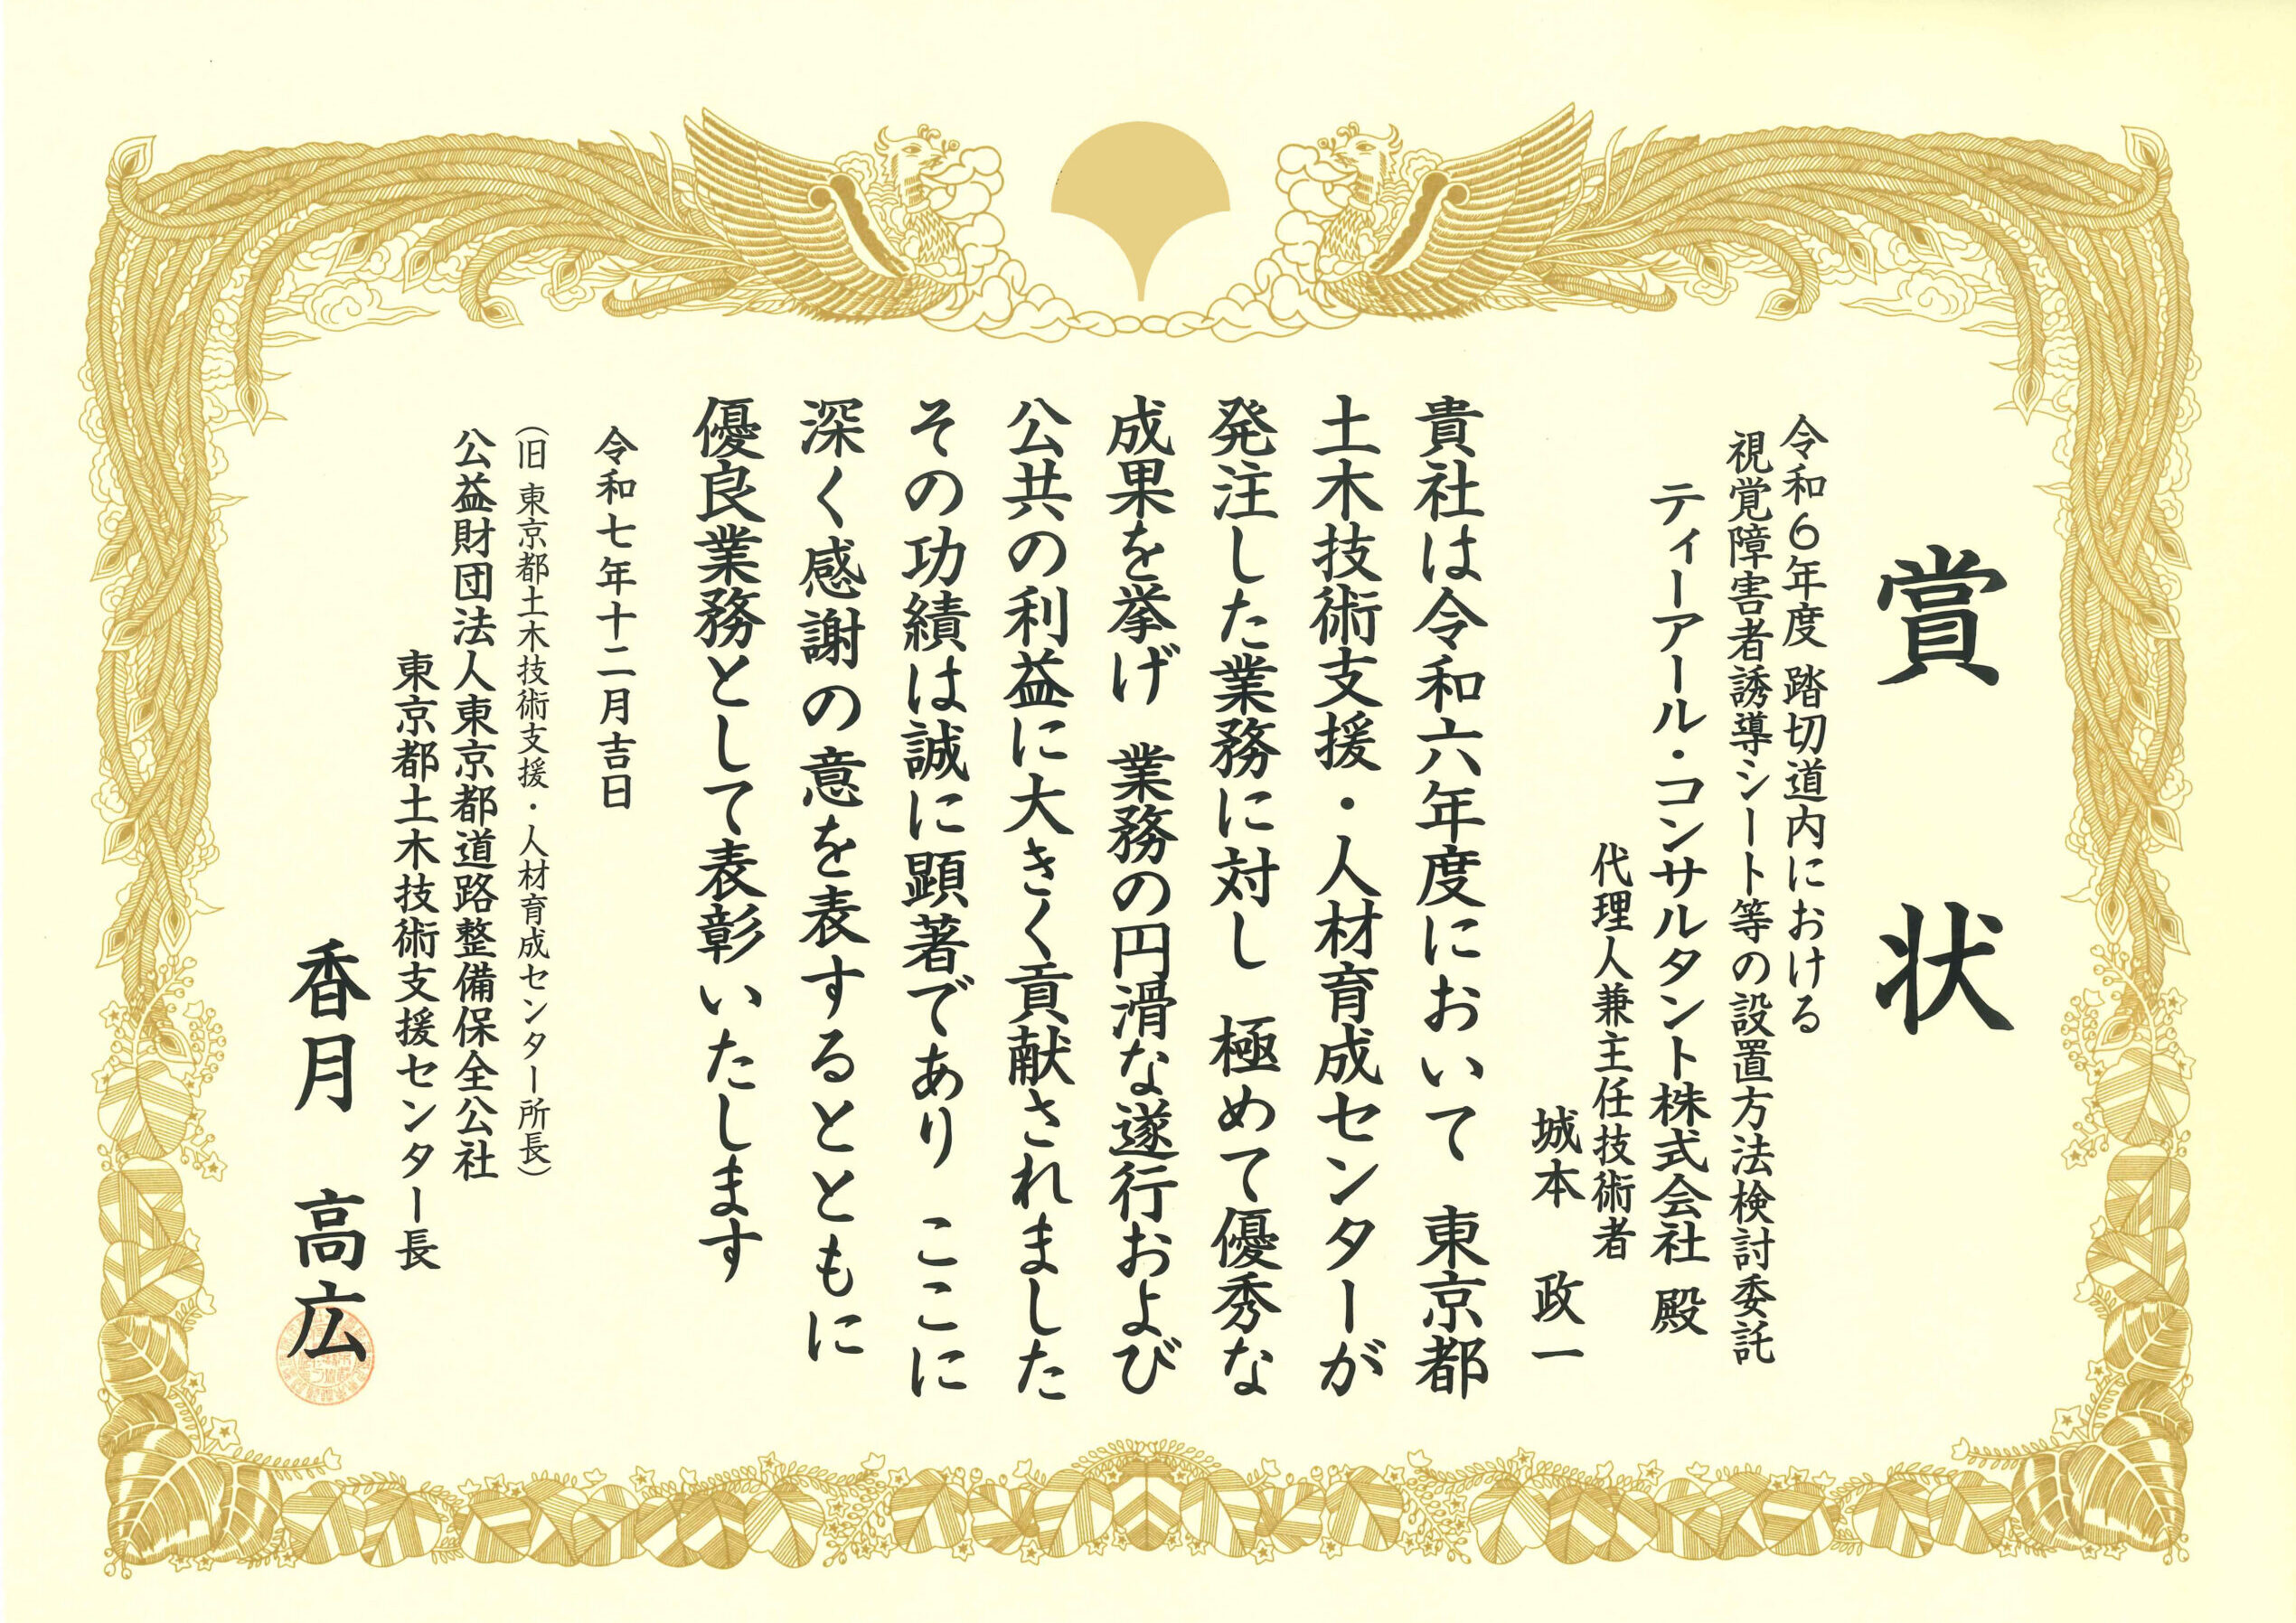 賞状
令和６年度 踏切道内における
視覚障害者誘導シート等の設置方法検討委託
ティーアール・コンサルタント株式会社 殿
代理人兼主任技術者
城本 政一
貴社は令和六年度において 東京都
土木技術支援・人材育成センターが
発注した業務に対し 極めて優秀な
成果を挙げ 業務の円滑な遂行および
公共の利益に大きく貢献されました
その功績は誠に顕著であり ここに
深く感謝の意を表するとともに
優良業務として表彰いたします
令和七年十二月吉日
（旧 東京都土木技術支援・人材育成センター所長）
公益財団法人東京都道路整備保全公社
東京都土木技術支援センター長
香月 高広